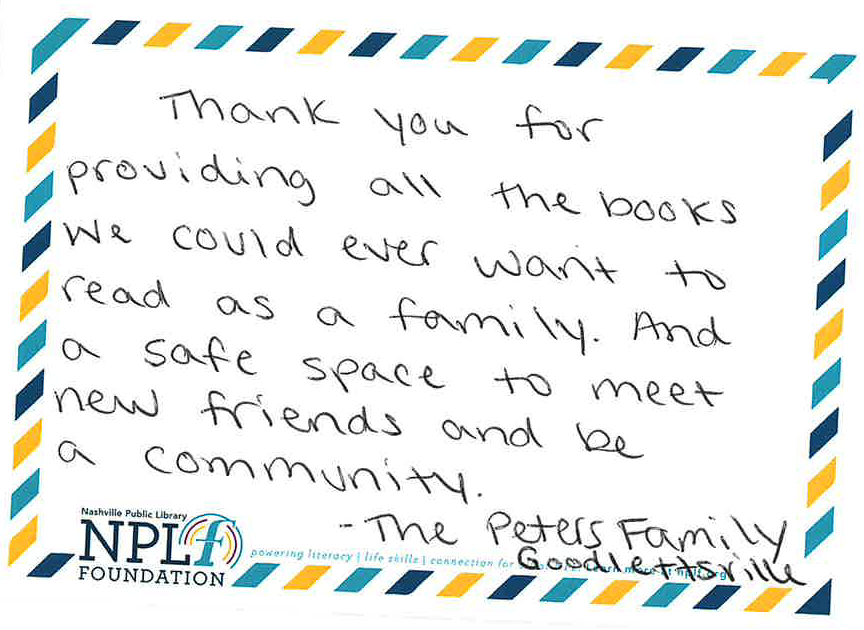 Thank you for
providing all the books
we could ever want to
read as a family. And
a safe space to meet
new friends and be
a community.
- The Peters Family
Goodlettsville
Nashville Public Library
NPLf
FOUNDATION
powering literacy | life skills | connection for